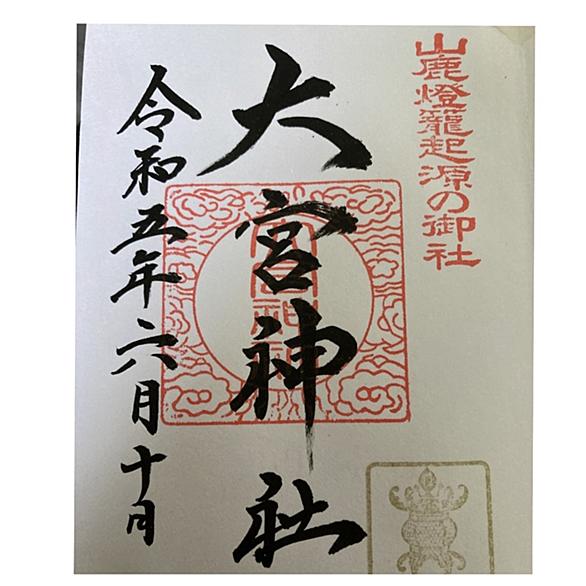 山鹿燈籠起源の御社
大宮神社
令和五年六月十日